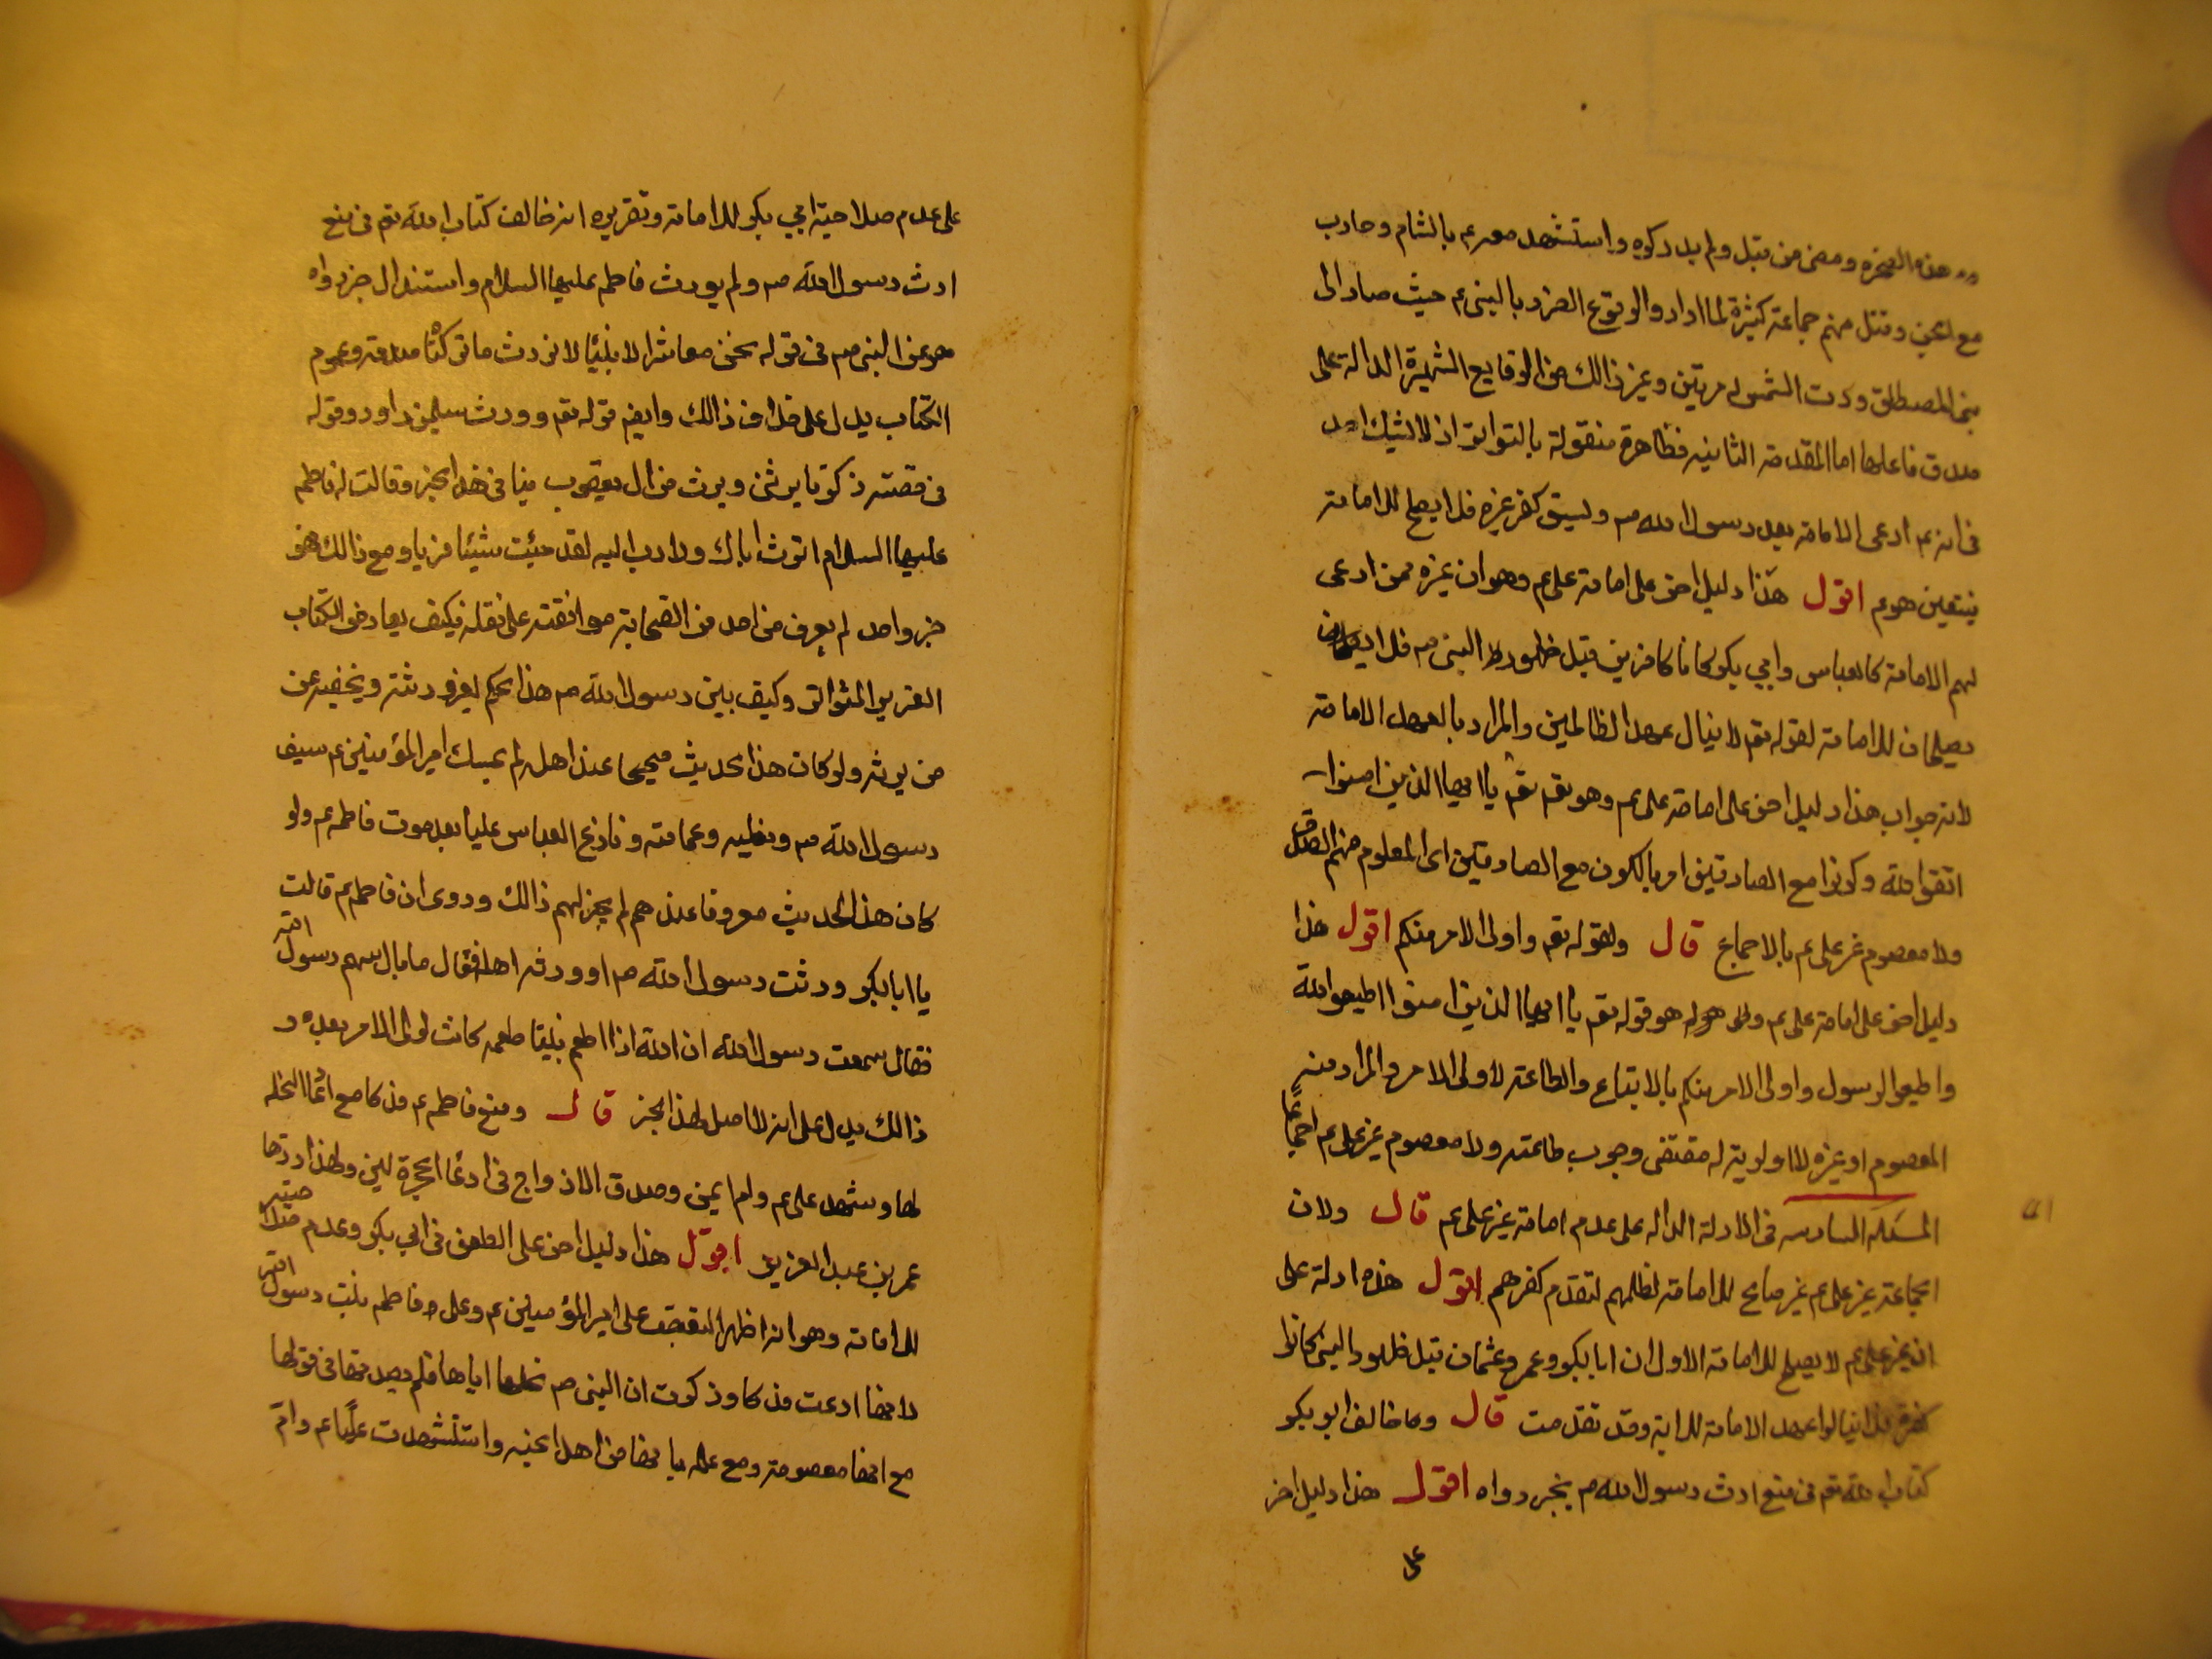 هذه الصخرة ومضى من قبل ولم يدركوه واستشهد معه عم بالشام وحارب
مع الجن وقتل منهم جماعة كثيرة لما ارادوا لوقوع الضرر بالنبى عم حيث صار الى
بنى المصطلق وردت الشمس له مرتين وغير ذالك من الوقايع الشهيرة الدالة على
صدق فاعلها اما المقدمة الثانيه فظاهرة منقولة بالتواتر اذ لا يشك احد
فى انه عم ادعى الامامة بعد رسول الله صم وسبق كفر غيره فلا يصلح للامامة
فيتعين هو عم اقول هذا دليل اخر على امامة على عم وهو ان غيره ممن ادعى
لهم الامامة كالعباس وابي بكر كانا كافرين قبل ظهور النبى صم فلا
يصلحان للامامة لقوله تعم لا ينال عهد الظالمين والمراد بالعهد الامامة
لانه جواب هذا دليل اخر على امامة على عم وهو تعم تعم يا ايها الذين امنوا
اتقوا الله وكونوا مع الصادقين امر بالكون مع الصادقين اى المعلوم منهم الصدق
ولا معصوم غير على عم بالاجماع قال ولقوله تعم واولى الامر منكم اقول هذا
دليل اخر على امامة على عم وهو قوله تعم يا ايها الذين امنوا اطيعوا الله
واطيعوا لرسول واولى الامر منكم بالاتباع والطاعة لاولى الامر والمراد منه
المعصوم او غيره لا اولوية له مقتضى وجوب طاعته ولا معصوم غير على عم اجماعا
المسئله السادسه فى الادلة الداله على عدم امامة غير على عم قال ولان
الجماعة غير على عم غير صالح للامامة لظلمهم لتقدم كفرهم اقول هذه ادلة على
ان غير على عم لا يصلح للامامة الاول ان ابا بكر وعمر وعثمان قبل ظهور النبى كانوا
كفرة فلا ينالوا عهد الامامة للاية وقد تقدمت قال وخالف ابو بكر
كتاب الله تعم فى منع ارث رسول الله صم بخبر رواه اقول هذا دليل اخر
على
على عدم صلاحية ابي بكر للامامة وتقريره انه خالف كتاب الله تعم فى منع
ارث رسول الله صم ولم يورث فاطمه عليها السلام واستند الى خبر رواه
هو عن النبى صم فى قوله نحن معاشر الانبياء لا نورث ما تركناه صدقة وعموم
الكتاب يدل على خلاف ذالك وايضم قوله تعم وورث سليمن داود وقوله
فى قصة زكريا يرثنى ويرث من ال يعقوب ينافى هذا الخبر وقالت له فاطمه
عليها السلام اترث اباك ولا ارث ابيه لقد جئت شيئا فريا ومع ذالك فهو
خبر واحد لم يعرف من احد من الصحابة موافقته على نقله فكيف يعارض الكتاب
العزيز المتواتر وكيف بين رسول الله صم هذا الحكم لغير ورثته ويخفيه عن
من يرثه ولو كان هذا الحديث صحيحا عند اهله لم يمسك امير المؤمنين عم سيف
رسول الله صم وبغلته وعمامته ونازع العباس عليا بعد موت فاطمه عم ولو
كان هذا الحديث معروفا عندهم لم يجز لهم ذالك وروى ان فاطمه عم قالت
يا ابا بكر ورثت رسول الله صم او ورثه اهله فقال ما بال سهم رسول الله
فقال سمعت رسول الله ان الله اذا اطعم نبيا طعمه كانت لولى الامر بعده و
ذالك يدل على انه لا اصل لهذا الخبر قال ومنع فاطمه عم فدكا مع ادعاء النحله
لها وشهد على عم وام ايمن وصدق الازواج فى ادعاء الحجرة لهن ولهذا ردها
عمر بن عبد العزيز اقول هذا دليل اخر على الطعن فى ابي بكر وعدم صلاحيته
للامامة وهو انه اظهر التعصب على امير المؤمنين عم وعلى فاطمه بنت رسول الله
لانها ادعت فدكا وذكرت ان النبى صم نحلها اياها فلم يصدقها فى قولها
مع انها معصومة ومع علمه بانها من اهل الجنه واستشهدت عليا عم وام